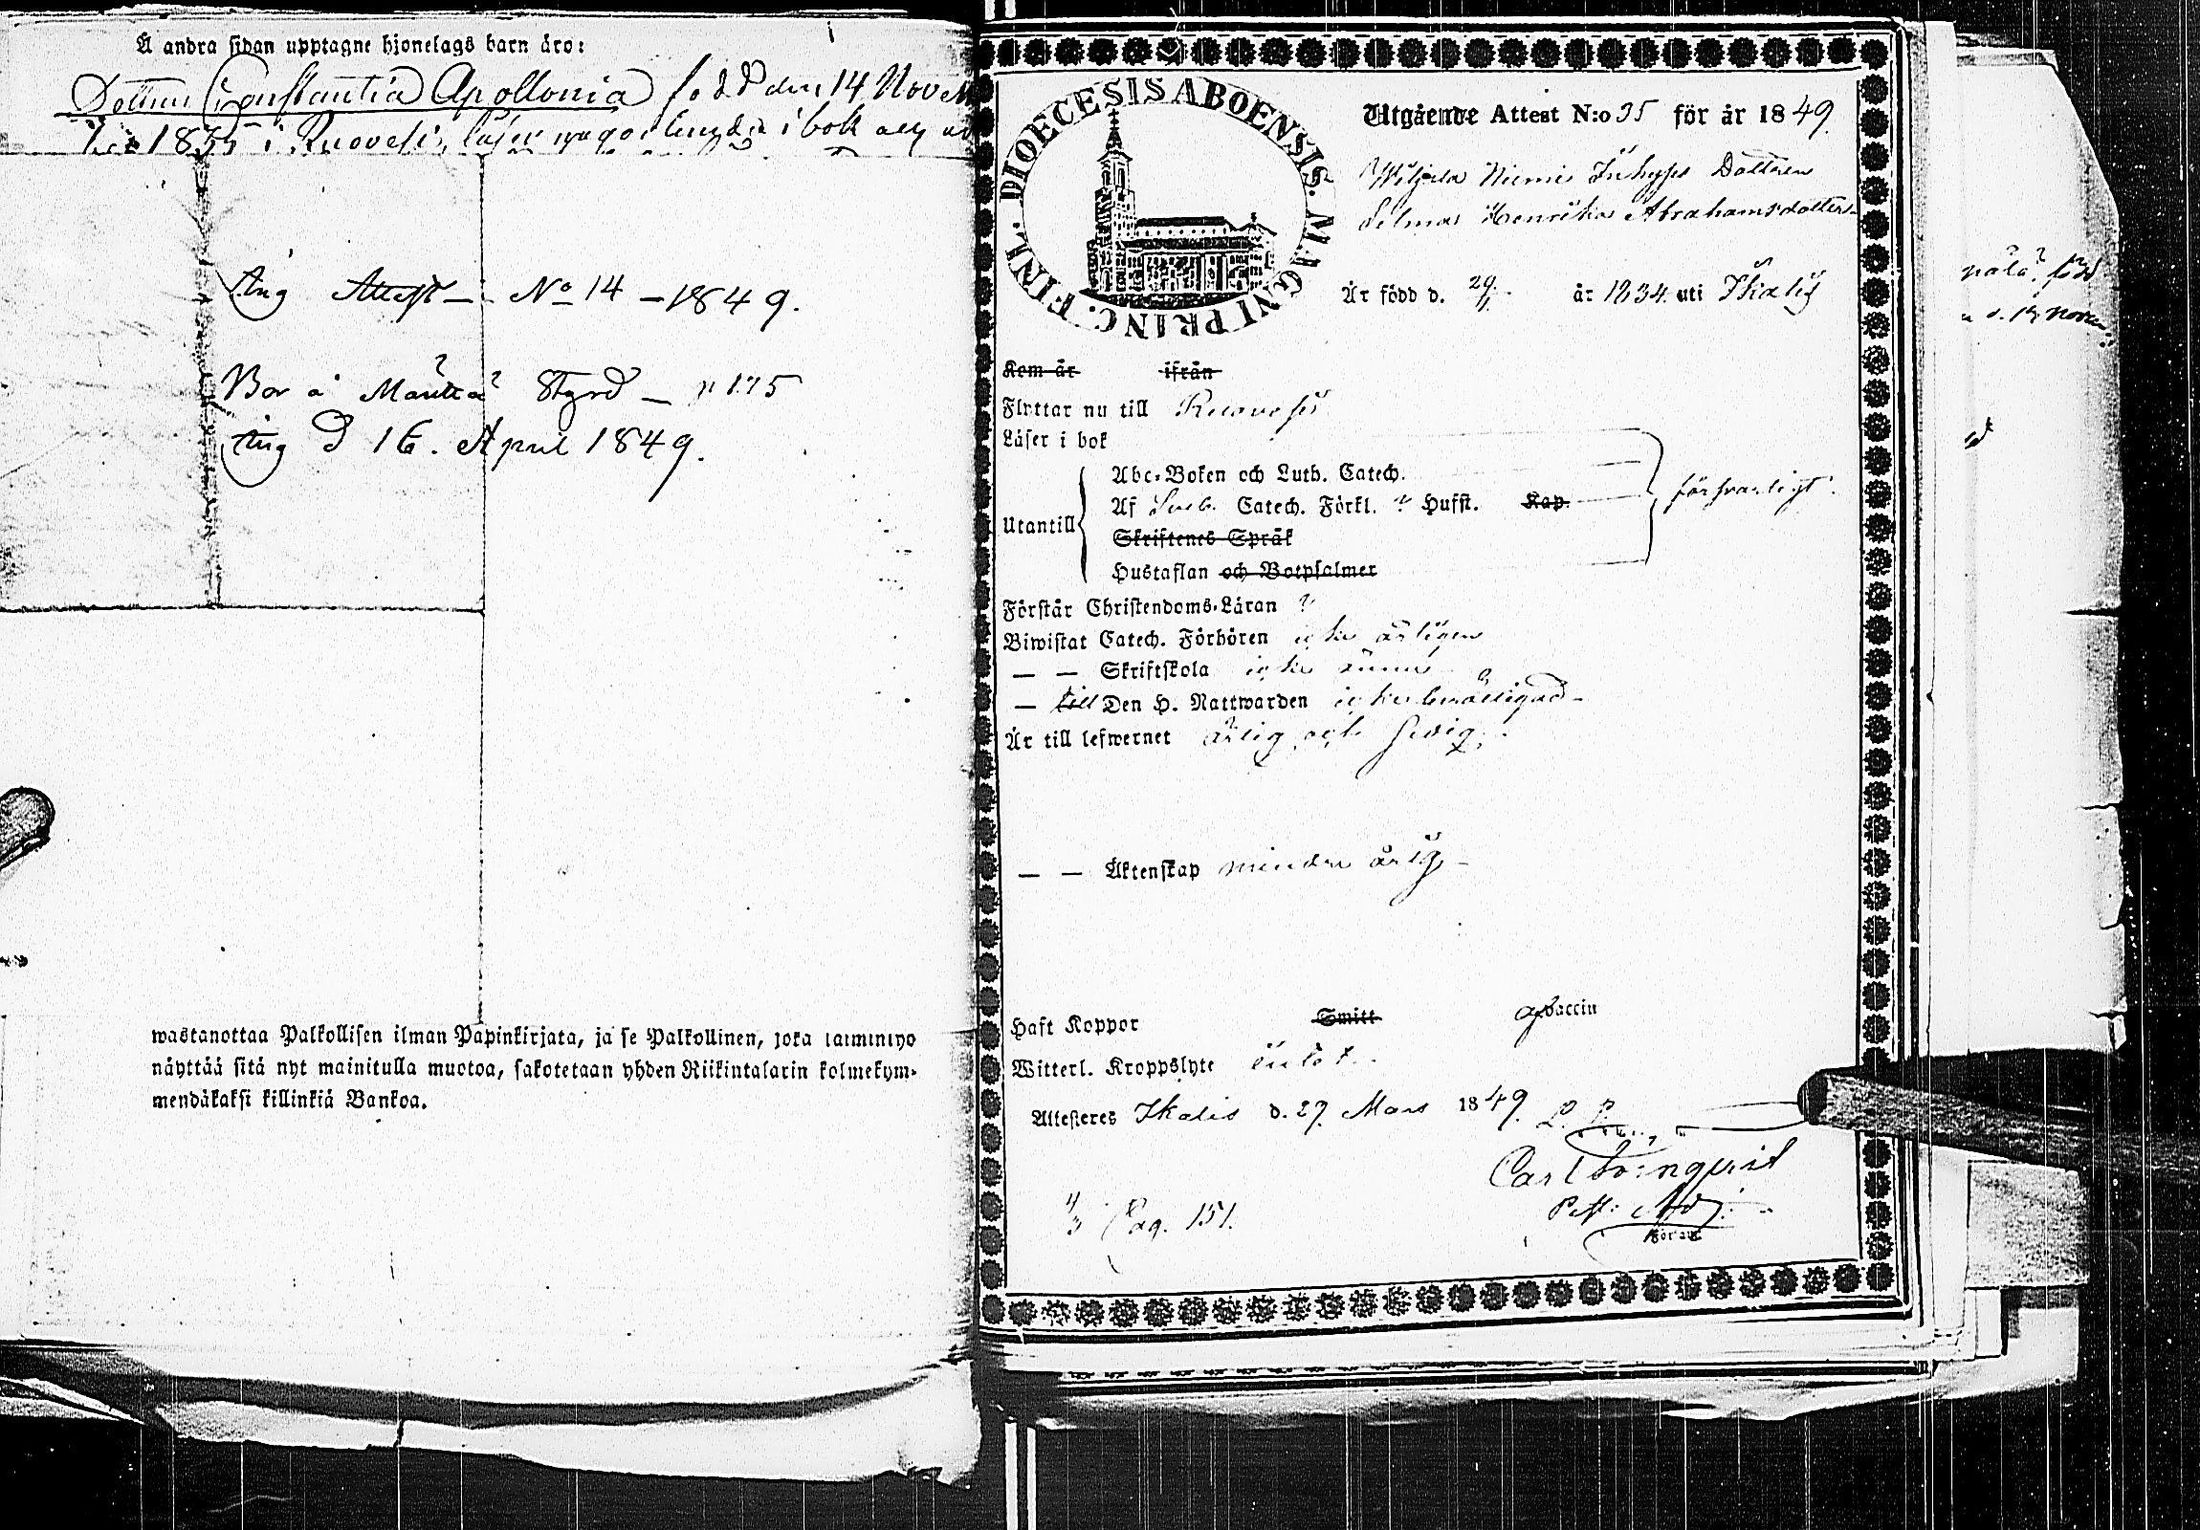 Å andra sidan upptagne hjonelags barn äro:
Dottren Constantia Apollonia född den 14 Novem
ber 1835 i Ruovesi, läser i bok och
Ing Attest – No 14 – 1849.
Bor å Mänttä Styrd – p 175
Ing D 16. April 1849.
wastanottaa Palkollisen ilman Papinkirjata, ja se Palkollinen, joka laiminlyö
näyttää sitä nyt mainitulla muotoa, sakotetaan yhden Riikintalarin kolmekym-
mendäkaksi killinkiä Bankoa.
DIOECESIS ABOENSIS. MAGNI PRINC. FINL.
Utgående Attest N:o 35 för år 1849.
Niemi Inhyses Dottren
Selma Henrika Abrahamsdotter
Är född d. 29/1 år 1834 uti Ikalis
Kom år ifrån
Flyttar nu till Ruovesi
Läser i bok
Utantill
Abc-Boken och Luth. Catech.
Af Sveb. Catech. Förkl. Hufst. Kap.
Skriftenes Språk
Hustaflan och Botpsalmer
försvarligt.
Förstår Christendoms-Läran
Biwistat Catech. Förhören icke årligen
— — Skriftskola icke ännu
— till Den H. Nattwarden icke berättigad –
Är till lefwernet ärlig och sedig.
— — Äktenskap minder årig –
Haft Koppor Smitt vaccin
Witterl. Kroppslyte intet.
Attesteres Ikalis d. 27. Mars 1849.
Carl Törnqvist
P. M. Adj.
4/3 Pag. 151.
född
d. 14 Novem